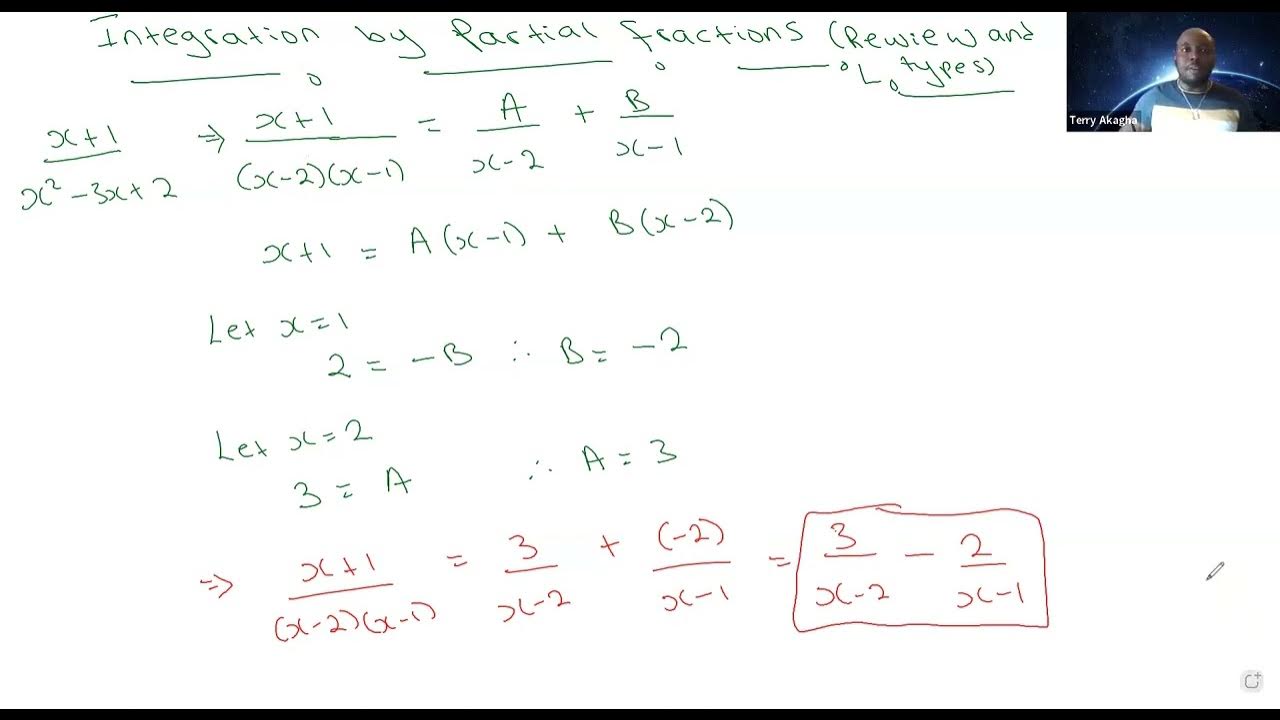 Integration by Partial fractions (Rewiew and
Types)
Terry Akagha
x+1/x² -3x+2 ⇒ x+1/(x-2)(x-1) = A/x-2 + B/x-1
x+1 = A(x-1) + B(x-2)
Let x=1
2 = -B ∴ B= -2
Let x=2
3 = A ∴ A = 3
⇒ x+1/(x-2)(x-1) = 3/x-2 + (-2)/x-1 = 3/x-2 - 2/x-1